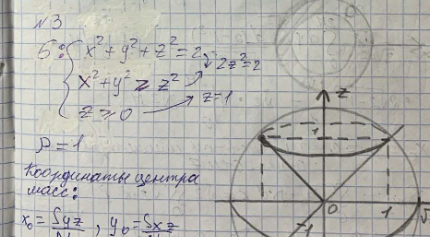 № 3
Б: { x² + y² + z² = 2
2z² = 2
x² + y² ≥ z²
z ≥ 0
z = 1
ρ = 1
Координаты центра
масс:
x₀ = Syz , y₀ = Sxz
z
1
0
1
-1